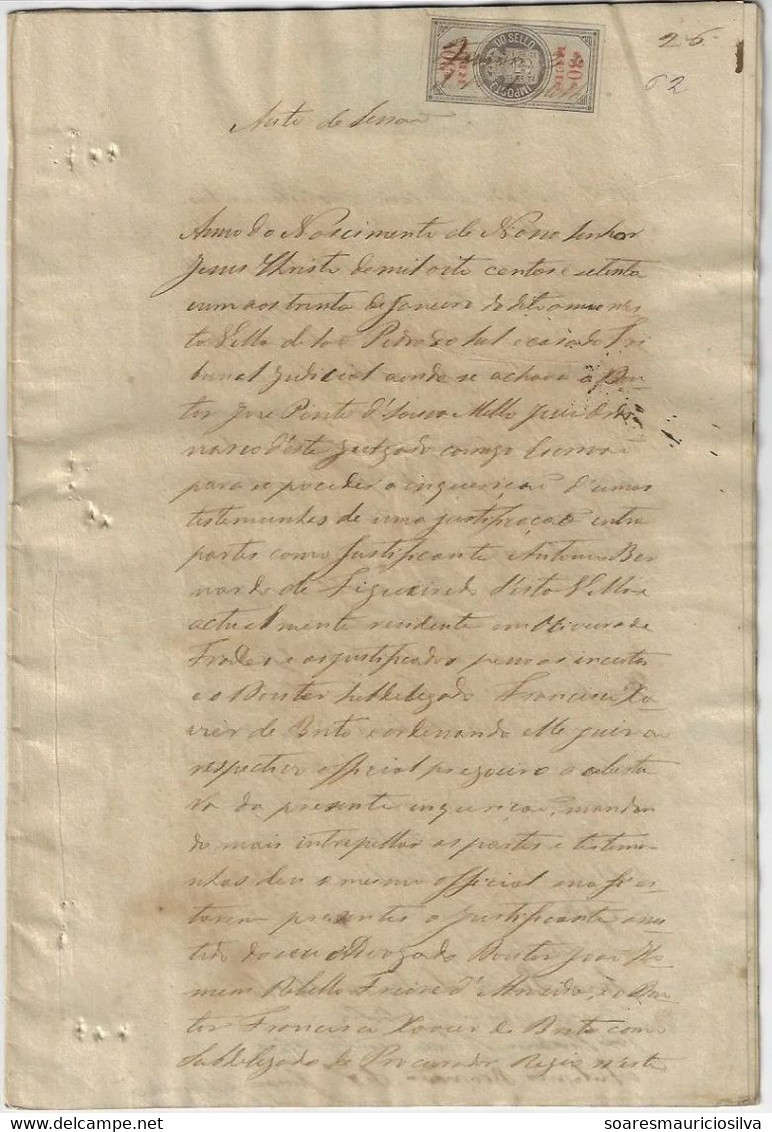 25
62
IMPOSTO DO SELLO
80
RÉIS
80
RÉIS
Auto de Sessão
Anno do Nascimento de Nosso Senhor
Jesus Christo de mil oito centos e setenta
e um aos trinta de Janeiro do dito anno n'es
ta Villa de São Pedro do Sul e casa do Tri
bunal Judicial aonde se achava o Dou
tor José Pinto d'Sousa Mello Juiz Ordi
nario d'este Julgado comigo Escrivão
para se proceder a inquerição d'umas
testemunhas de uma justificação entre
partes como Justificante Antonio Ber
nardo de Figueiredo d'esta Villa e
actualmente residente em Oliveira de
Frades e os justificados pessoas incertas
e o Doutor Subdelegado Francisco Xa
vier de Brito e ordenando elle Juiz ao
respectivo official pregoeiro a abertu
ra da presente inquerição, mandan
do mais intrepellar as partes e testemu
nhas deu o mesmo official sua fé es
tarem presentes o Justificante assis
tido do seu Advogado Doutor João Ho
mem Rebello Freire d'Almeida, e o Dou
tor Francisco Xavier de Brito como
Subdelegado do Procurador Regio n'este
soaresmauriciosilva